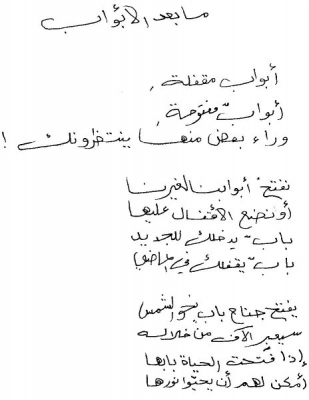 ما بعد الأبواب
أبواب مقفلة ,
أبوابٌ مفتوحة ,
وراء بعض منها ينتظرونك !
نفتحُ أبوابنا لغيرنا
أو نضع الأقفال عليها
بابٌ يدخلك للجديد
بابٌ يقفلك في الماضي
يفتح جناح باب نحو الشمس
سيعبر الآلاف من خلاله
إذا فتحت الحياة بابها
أمكن لهم أن بنورها